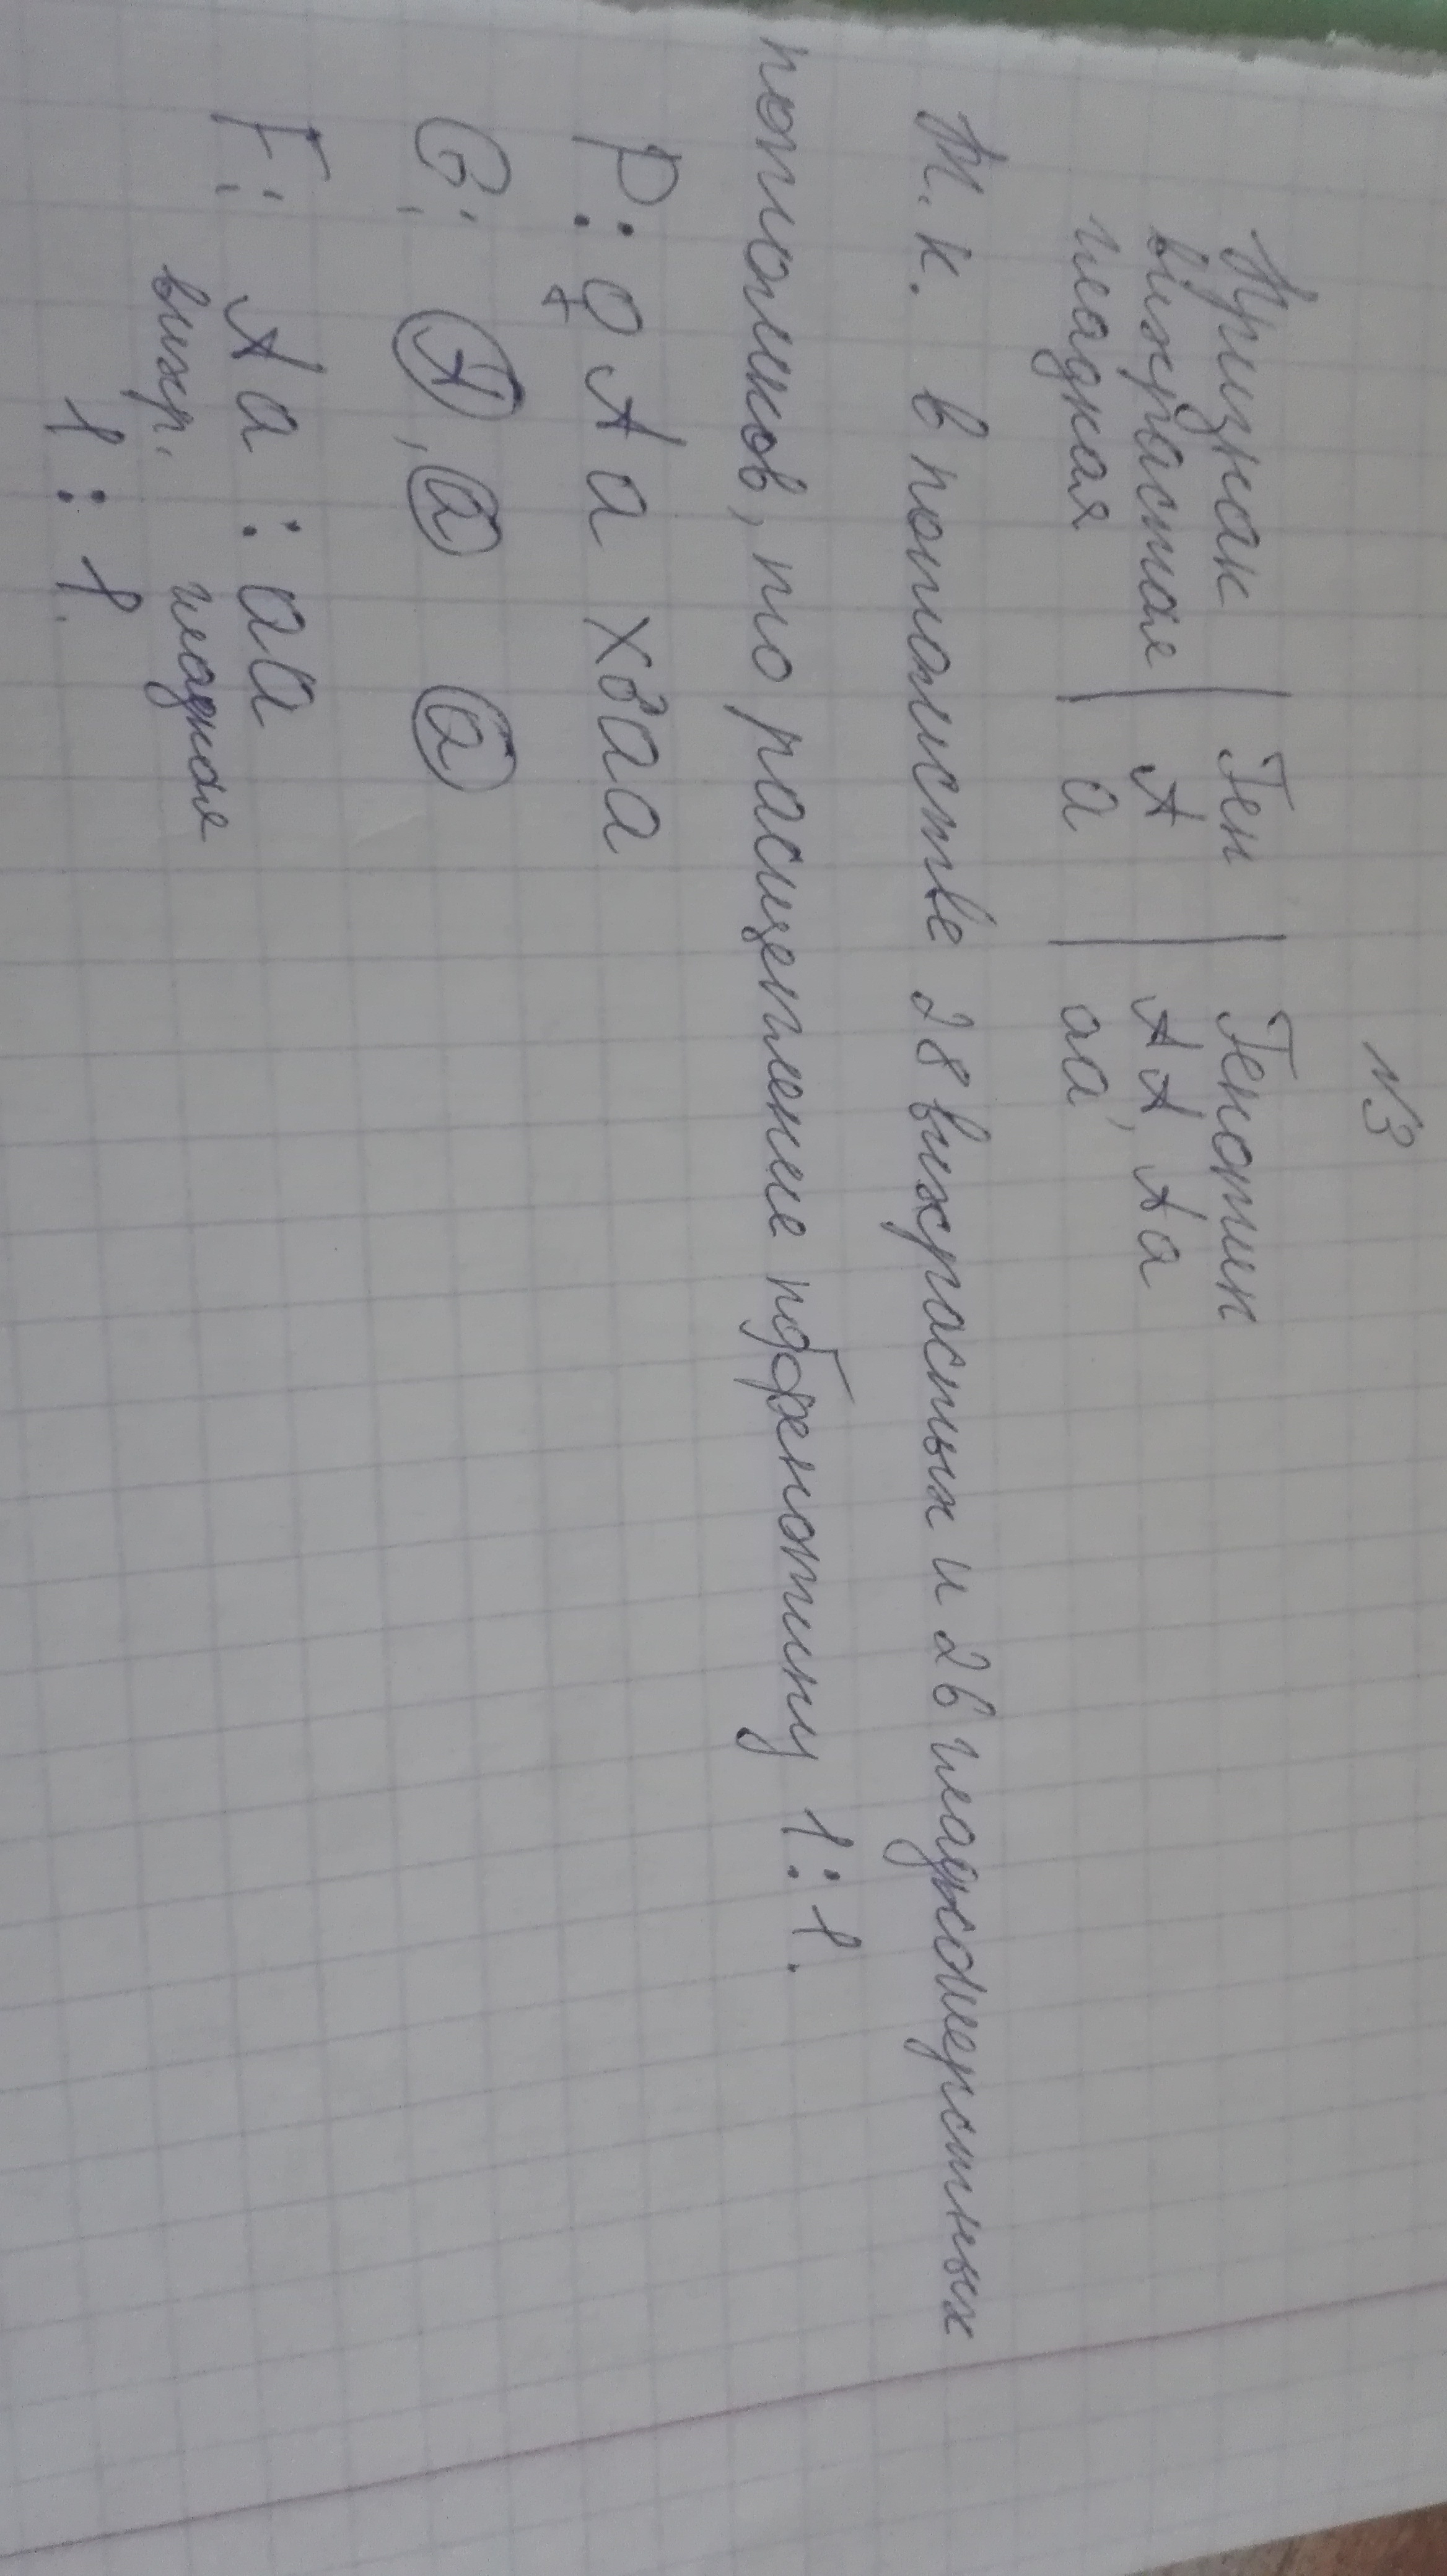 №3
Признак | Ген | Генотип
вихрастая | А | АА, Аа
гладкая | а | аа
Т.к. в потомстве 28 вихрастых и 26 гладкошерстных
потомков, то расщепление по фенотипу 1:1.
Р: ♀ Аа х ♂ аа
G: А, а а
F: Аа : аа
вихр. гладкая
1 : 1